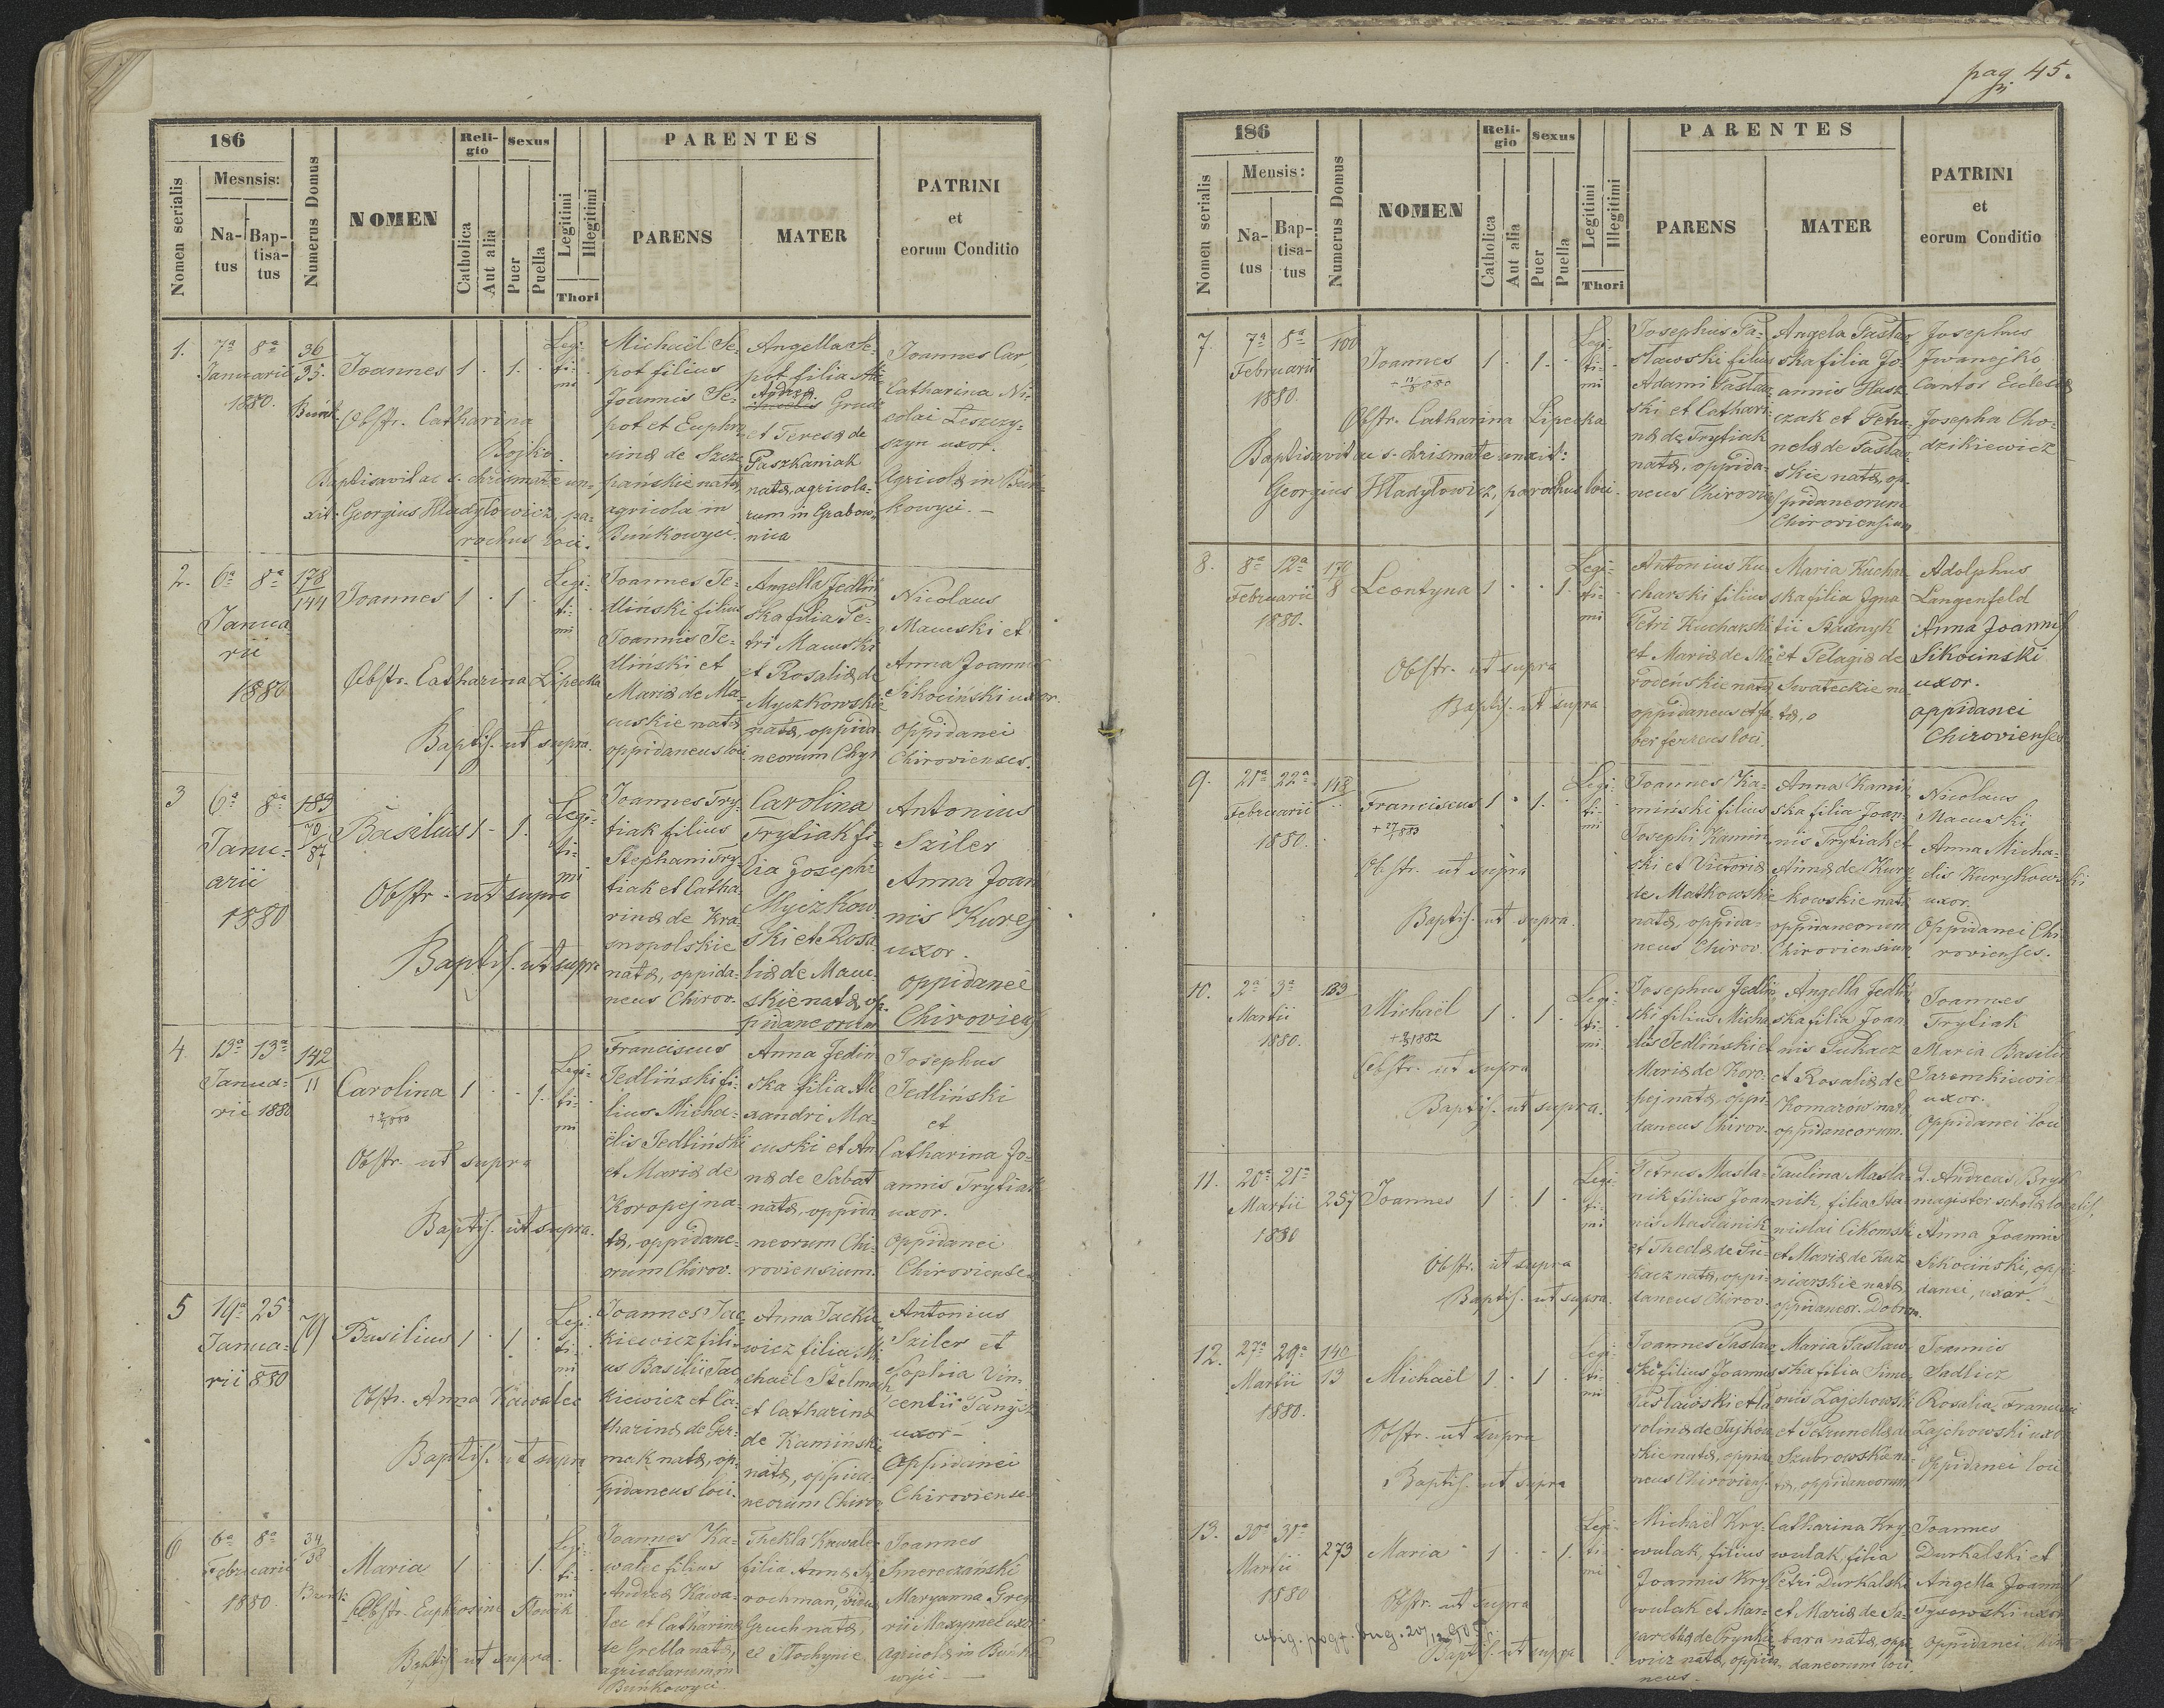 pag. 45.
186
Mesnsis:
Nomen serialis
Na-
tus
Bap-
tisa-
tus
Numerus Domus
NOMEN
Reli-
gio
Catholica
Aut alia
Sexus
Puer
Puella
Legitimi
Illegitimi
Thori
PARENTES
PARENS
MATER
PATRINI
et
eorum Conditio
1. 7ª 8ª
Januarii
1880.
36
35.
Joannes 1 · 1 ·
Legi-
ti-
mi
Obstr. Catharina
Bojko.
Baptisavit ac s. chrismate un-
xit Georgius Hladyłowicz, pa-
rochus loci.
Michaël Se-
pot filius
Joannis Se-
pot et Euphro-
sinæ de Szcze-
pańskie nata,
agricola in
Buńkowyci.
Angella Se-
pot filia
Andreæ
et Teresæ de
Paszkaniak
natæ, agricola-
rum in Grabow-
nica
Joannes Car,
Catharina Ni-
colai Leszczy-
szyn uxor.
Agricolæ in Buń-
kowyci. —
2. 6ª 8ª
Janua
rii
1880
178
144
Joannes 1 · 1 ·
Legi-
ti-
mi
Obstr. Catharina Lipecka
Baptis. ut supra.
Joannes Je-
dliński filius
Joannis Je-
dliński et
Mariæ de Ma-
cuskie natæ
oppidaneus loci
Angella Jedliń
ska filia Pe-
tri Macuski
et Rosaliæ de
Myczkowskie
natæ, oppida
neorum Chyr
Nicolaus
Macuski et
Anna Joannis
Sikociński uxor.
oppidanei
Chirovienses.
3 6ª 8ª
Janu-
arii
1880
183
70
87
Basilius 1 - 1.
Legi-
ti-
mi
Obstr. ut supra
Baptis. ut supra
Joannes Try-
tiak filius
Stephani Try-
tiak et Catha-
rinæ de Kra-
snopolskie
natæ, oppida-
neus Chirov.
Carolina
Trytiak fi-
lia Josephi
Myczkow-
ski et Rosa
liæ de Macu-
skie natæ op-
pidaneorum
Antonius
Sziler
Anna Joan
nis Kurej
uxor.
oppidanei
Chiroviens.
4 13ª 13ª
Janua-
rii 1880
142
11
Carolina 1 · · 1.
Legi-
ti-
mi
Obstr. ut supra
Baptis. ut supra.
Franciscus
Jedliński fi-
lius Micha-
ëlis Jedliński
et Mariæ de
Koropej na-
tæ, oppidane-
orum Chirov.
Anna Jedliń
ska filia Ale
xandri Ma-
cuski et An
næ de Sabat
natæ, oppida
neorum Chi-
roviensium.
Josephus
Jedliński
et
Catharina Jo-
annis Trytiak
uxor.
oppidanei
Chirovienses
5 19ª 25ª
Janua-
rii 1880
79
Basilius 1 · 1 ·
Legi-
ti-
mi
Obstr. Anna Kawalec
Baptis. ut supra
Joannes Jac
kiewicz fili-
us Basilii Jac
kiewicz et Ca-
tharinæ de Ger-
mak natæ, op-
pidaneus loci.
Anna Jackie
wicz filia Mi
chaël Stelmach
et Catharinæ
de Kamiński
natæ, oppida-
neorum Chirov
Antonius
Sziler et
Sophia Vin-
centii
uxor -
Oppidanei
Chirovienses
6 6ª 8ª
Februarii
1880.
34
38
Maria 1 · · 1.
Legi-
ti-
mi
Obstr. Euphrosine Słowik
Baptis. ut supra.
Joannes Ka-
walec filius
Andreæ Kawa-
lec et Catharinæ
de Grella natæ,
agricolarum in
Buńkowyci.
Thekla Kawalec
filia Annæ
rochman, vidua
Gruch natæ,
Joannes
Smereczański
Maryanna Grego
rii Maxymec uxor
agricolæ in Buńko
wyci —
186
Mensis:
Nomen serialis
Na-
tus
Bap-
tisa-
tus
Numerus Domus
NOMEN
Reli-
gio
Catholica
Aut alia
Sexus
Puer
Puella
Legitimi
Illegitimi
Thori
PARENTES
PARENS
MATER
PATRINI
et
eorum Conditio
7. 7ª 8ª
Februarii
1880.
100
Joannes 1 · 1 ·
Legi-
ti-
mi
Obstr. Catharina Lipecka
Baptisavit ac s. chrismate unxit:
Georgius Hladyłowicz, parochus loci.
Josephus Pa-
sławski filius
Adami Pasław
ski et Cathari-
næ de Trytiak
natæ, oppida-
neus Chirovien
Angela Pasław
ska filia Jo-
annis Husz-
czak et Petro-
nelæ de Pasław
skie natæ, op-
pidaneorum
Chiroviensium
Josephus
Iwanejko
Cantor Eclesiæ
Josepha Cho-
dzikiewicz
8. 8ª 12ª
Februarii
1880.
170
8
Leontyna 1 · · 1.
Legi-
ti-
mi
Obstr. ut supra
Baptis. ut supra
Antonius Ku-
charski filius
Petri Kucharski
et Mariæ de
natæ
oppidaneus et fa-
ber ferreus loci.
Maria Kuchar
ska filia Igna
tii Stadnyk
et Pelagiæ de
Swateckie na-
tæ, o
Adolphus
Langenfeld
Anna Joannis
Sikocinski
uxor.
oppidanei
Chirovienses
9. 21ª 22ª
Februarii
1880.
148
Franciscus 1 · 1.
Legi-
ti-
mi
Obstr. ut supra
Baptis. ut supra.
Joannes Ka-
miński filius
Josephi Kamin
ski et Victoriæ
de Matkowskie
natæ, oppida-
neus Chirov.
Anna Kamiń
ska filia Joan-
nis Trytiak et
Annæ de Kury-
kowskie natæ
oppidaneorum
Chiroviensium
Nicolaus
Macuski
Anna Micha-
elis Kurykowski
uxor.
Oppidanei Chi-
rovienses.
10. 2ª 3ª
Martii
1880.
183
Michaël 1 · 1 ·
Legi-
ti-
mi.
Obstr. ut supra
Baptis. ut supra.
Josephus Jedliń
ski filius Micha
ëlis Jedliński et
Mariæ de Koro-
pej natæ, oppi-
daneus Chirov.
Angella Jedliń
ska filia Joan
nis Sukacz
et Rosaliæ de
Komarów natæ
oppidaneorum.
Joannes
Trytiak
Maria Basilii
Jaremkiewicz
uxor.
Oppidanei loci
11. 20ª 21ª
Martii
1880
257
Joannes 1 · 1 ·
Legi-
ti-
mi
Obstr. ut supra
Baptis. ut supra.
Petrus Masła-
nik filius Joan-
nis Masłanik
et Theclæ de Su-
kacz natæ, oppi-
daneus Chirov.
Paulina Masła-
nik, filia Sta-
nislai
et Mariæ de Kuz
niarskie natæ
oppidaneor. Dobrom.
D. Andreas Bryk
magister scholæ localis,
Anna Joannis
Sikociński, oppi
danei, uxor. —
12. 27ª 29ª
Martii
1880.
140
13
Michaël 1 · 1 ·
Legi-
ti-
mi
Obstr. ut supra
Baptis. ut supra
Joannes Pasław-
ski filius Joannis
Pasławski et Ca
rolinæ de
skie natæ, oppida-
neus Chiroviens.
Maria Pasław-
ska filia Sime-
onis Zajchowski
et Petrunellæ de
Szubrowskie na-
tæ, oppidaneorum
Joannis
Sadlicz
Rosalia Francisci
Zajchowski uxor
Oppidanei loci
13. 30ª 31ª
Martii
1880
273
Maria 1 · · 1.
Legi-
ti-
mi
Obstr. ut supra
Baptis. ut supra
Michaël Kry-
wulak, filius
Joannis Kry-
wulak et Mar-
garethæ de Prynkie-
wicz natæ, oppida
neus.
Catharina Kry-
wulak, filia
Petri Durkalski
et Mariæ de Sa-
bara natæ, oppi
daneorum loci.
Joannes
Durkalski et
Angella Joannis
Tysowski uxor
oppidanei